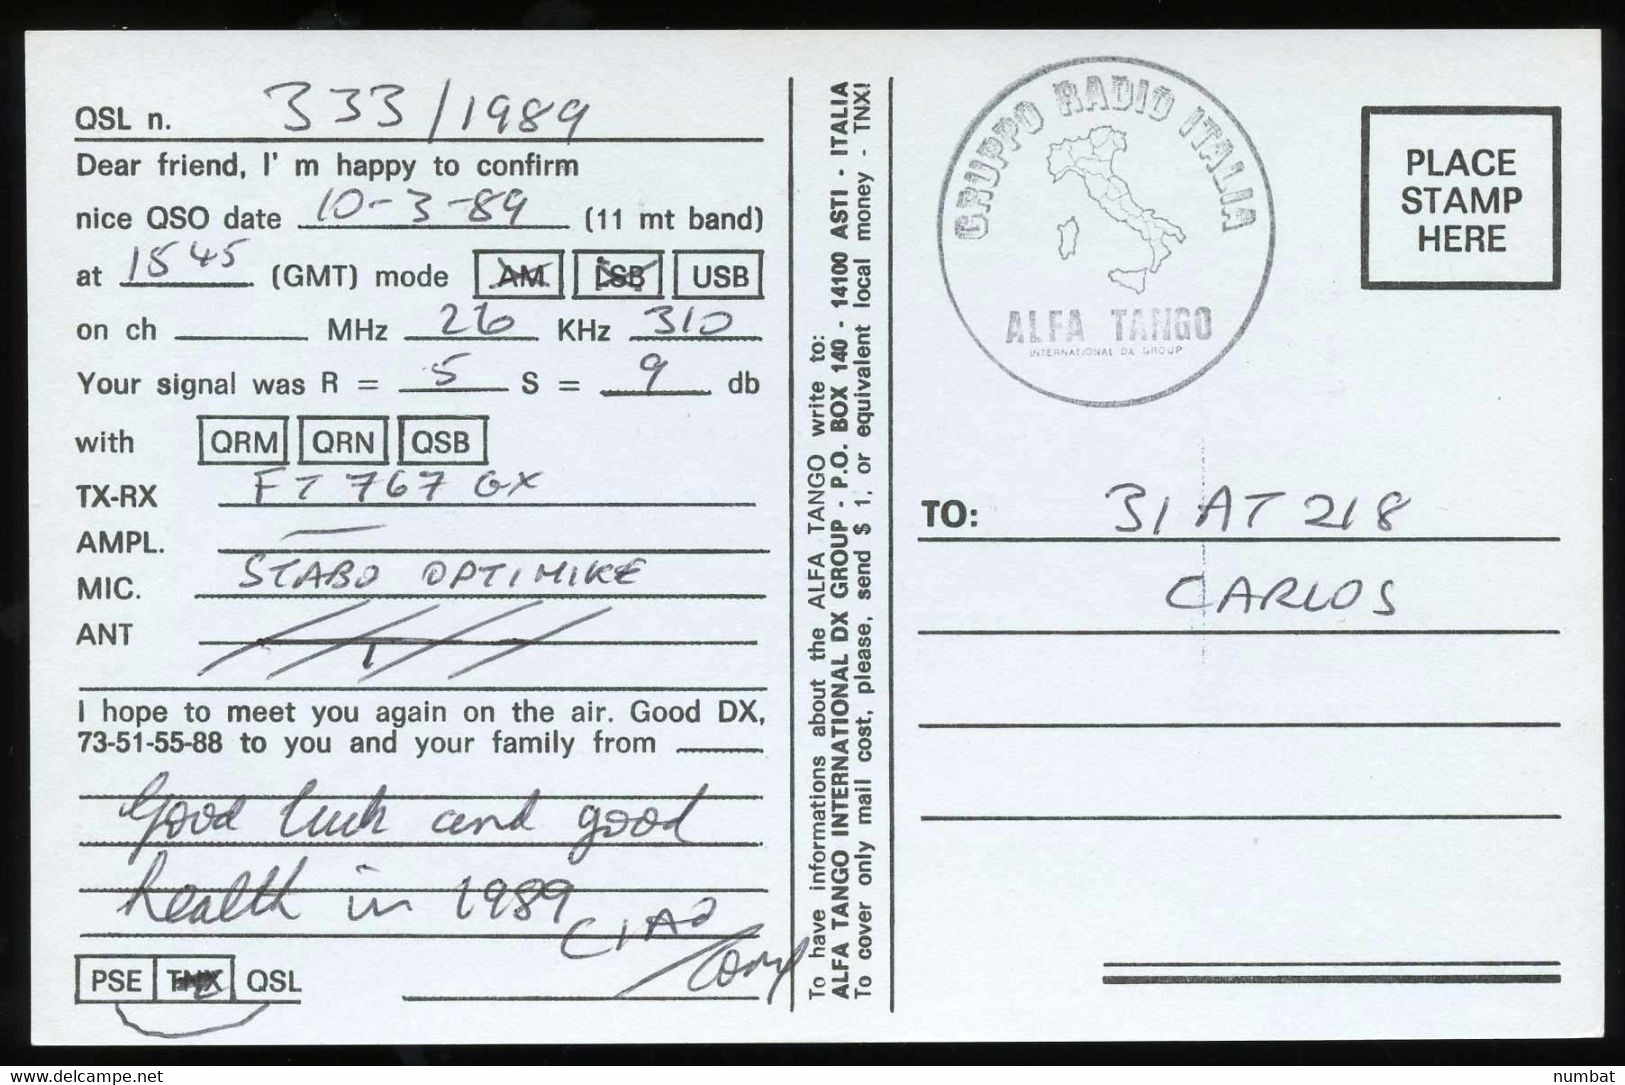 QSL n. 333/1989
Dear friend, I' m happy to confirm
nice QSO date 10-3-89 (11 mt band)
at 1845 (GMT) mode AM LSB USB
on ch MHz 26 KHz 310
Your signal was R = 5 S = 9 db
with QRM QRN QSB
TX-RX FT 767 GX
AMPL. —
MIC. STABO OPTIMIKE
ANT
I hope to meet you again on the air. Good DX,
73-51-55-88 to you and your family from
Good luck and good
health in 1989
CIAO
PSE TNX QSL
To have informations about the ALFA TANGO write to:
ALFA TANGO INTERNATIONAL DX GROUP - P.O. BOX 140 - 14100 ASTI - ITALIA
To cover only mail cost, please, send $ 1, or equivalent local money - TNX!
GRUPPO RADIO ITALIA
ALFA TANGO
INTERNATIONAL DX GROUP
PLACE
STAMP
HERE
TO: 31 AT 218
CARLOS
delcampe.net
numbat